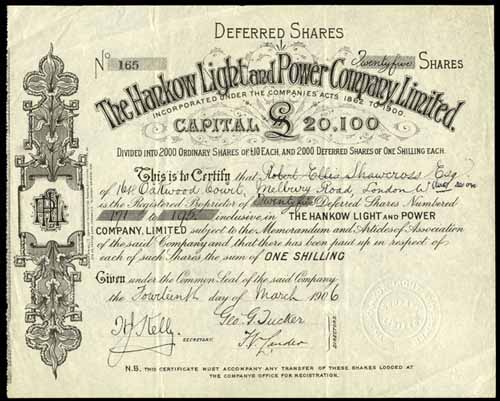 DEFERRED SHARES
No 165 Twentyfive SHARES
The Hankow Light and Power Company, Limited.
INCORPORATED UNDER THE COMPANIES ACTS 1862 TO 1900.
CAPITAL £ 20.100
DIVIDED INTO 2000 ORDINARY SHARES OF £10 EACH, AND 2000 DEFERRED SHARES OF ONE SHILLING EACH.
This is to Certify that Robert Ellis Shawcross Esqr
of 164 Oakwood Court, Melbury Road, London W
is the Registered Proprietor of Twentyfive Deferred Shares Numbered
171 to 195 inclusive, in THE HANKOW LIGHT AND POWER
COMPANY, LIMITED subject to the Memorandum and Articles of Association
of the said Company and that there has been paid up in respect of
each of such Shares the sum of ONE SHILLING
Given under the Common Seal of the said Company
the Fourteenth day of March 1906
Geo. G. Tucker
SECRETARY.
DIRECTORS.
N.B. THIS CERTIFICATE MUST ACCOMPANY ANY TRANSFER OF THESE SHARES LODGED AT
THE COMPANYS OFFICE FOR REGISTRATION.